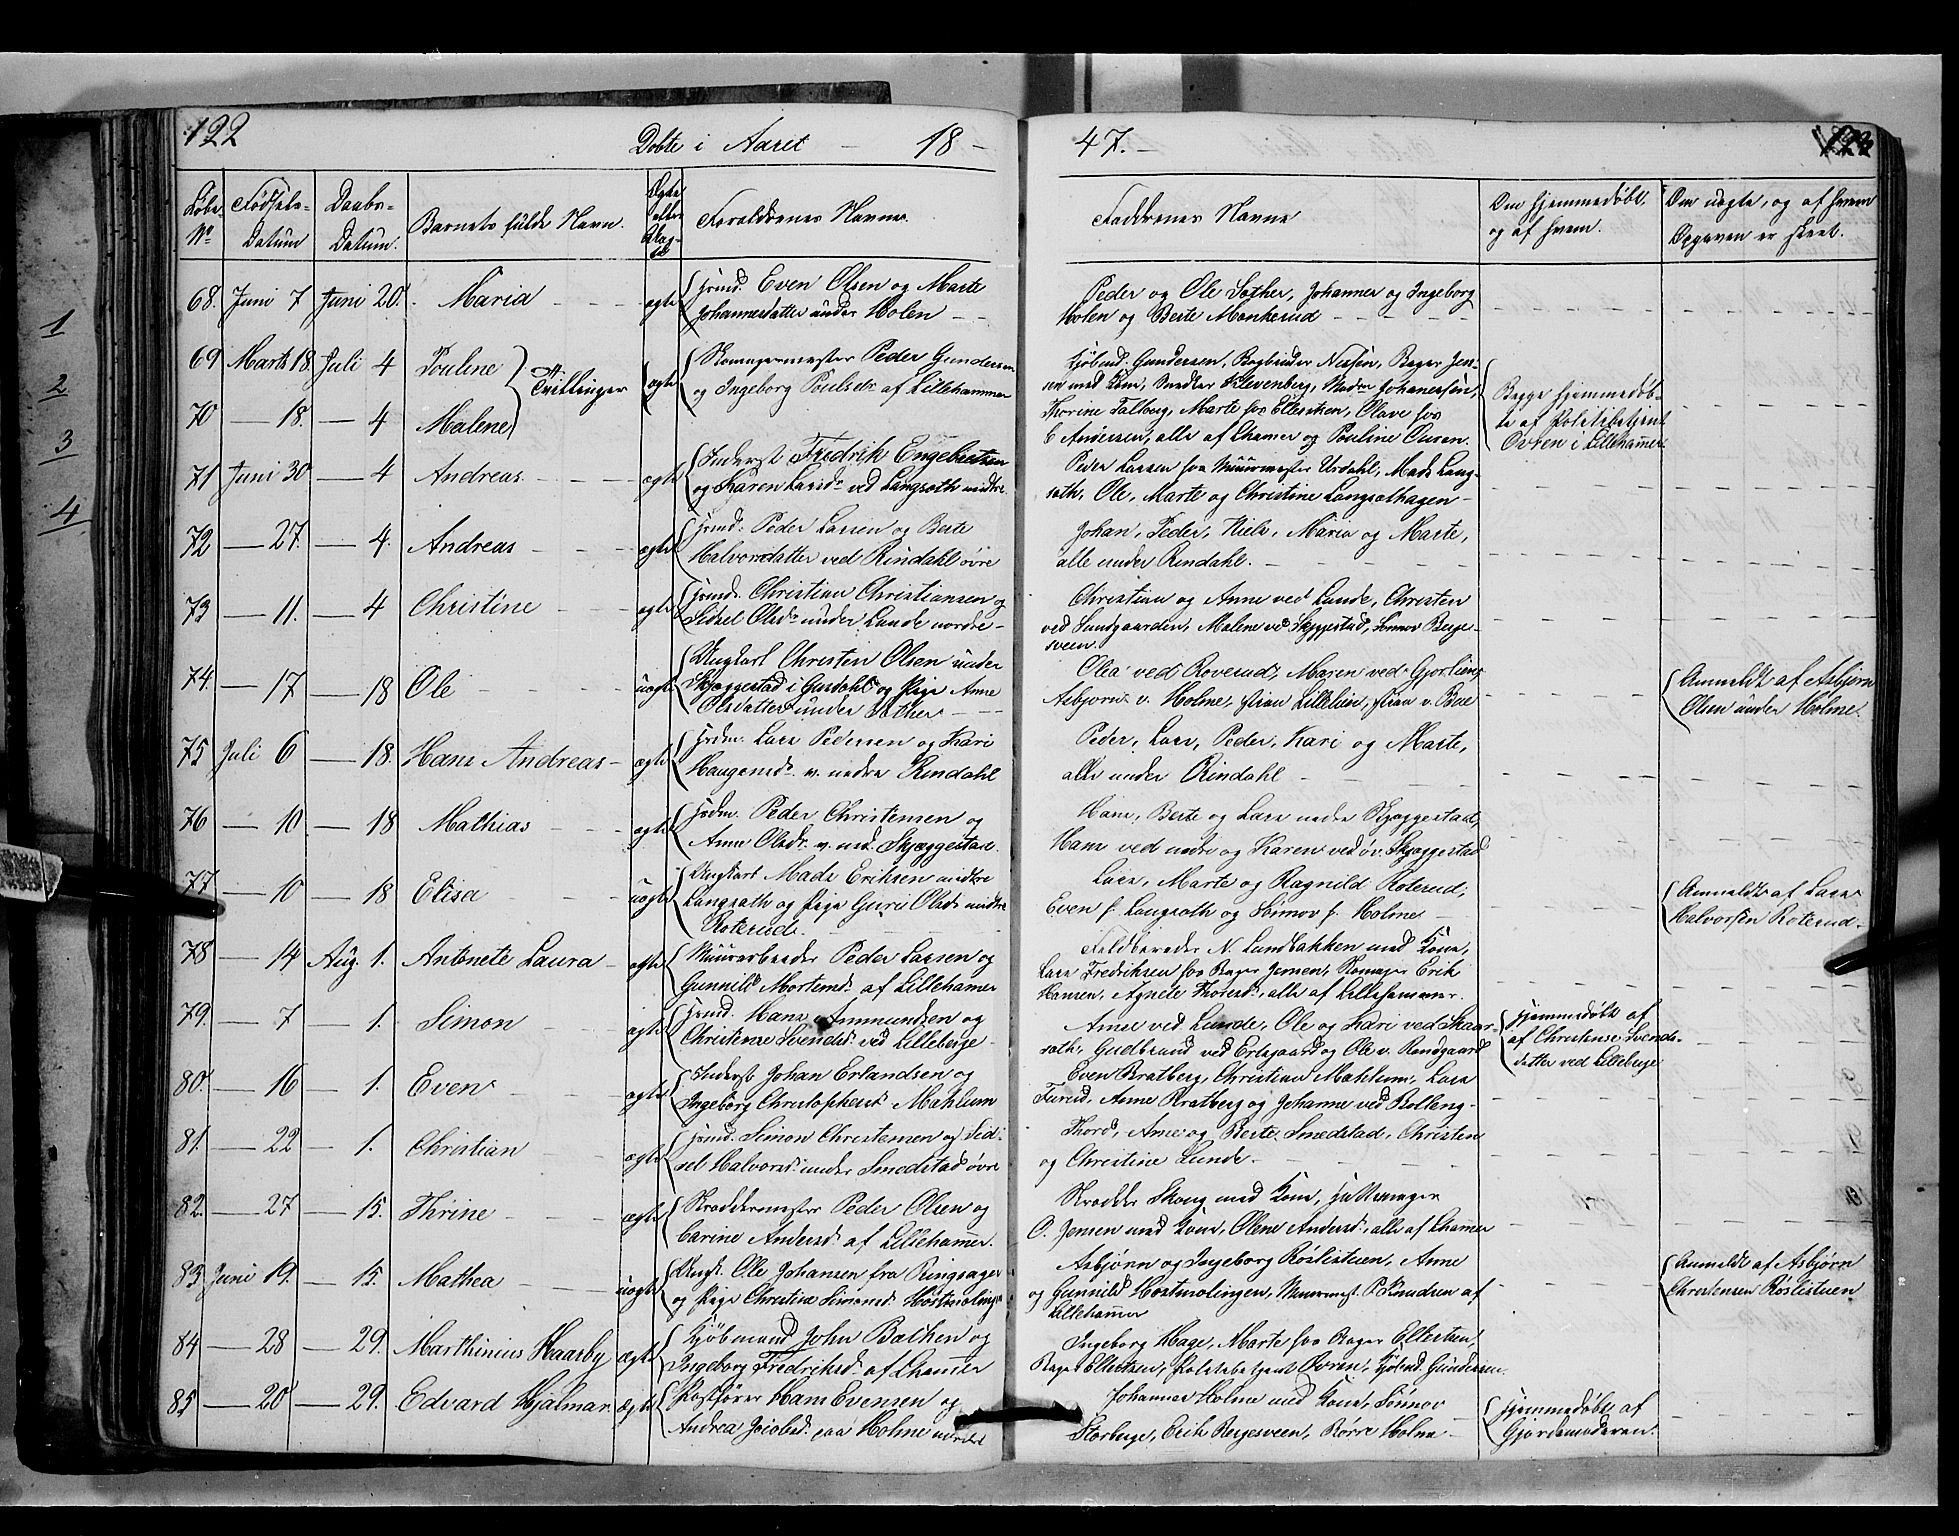 122
Døbte i Aaret - 18 -
47.
Løbe
No
Fødsels-
Datum
Daabs-
Datum.
Barnets fulde Navn.
Ægte
eller
Uæg-
te
Forældrenes Navne.
Faddrenes Navne
Om hjemmedøbt,
og af hvem.
Om uægte, og af hvem
Opgaven er skeet.
68. Juni 7 Juni 20. Maria ægte Huusmd. Even Olsen og Marte
Johannesdatter under Holen
Peder og Ole Sother, Johannes og Ingeborg
Holen og Berte Monkerud
69 Marts 18. Juli 4 Pouline Tvillinger ægte Skomagermester Peder Gundersen
og Ingeborg Poulsdr af Lillehammer
70 - 18. - 4 Malene
Kjøbmd. Gundersen, Bogbinder Nissen, Bager Jen-
sen med Kone, Sadler Klevenberg, Mads Johanesen,
Thorine Talberg, Marte hos Ellestsen, Olave hos
C Andersen, alle af Lhamer og Pouline Owren.
Begge hjemmedøb-
te af Politibetjent
Owren i Lillehamer
71 Juni 30 - 4 Andreas ægte Inderst Fredrik Engebretsen
og Karen Larsdr ved Langseth midtre
Peder Larsen hos Muurmester Urdahl, Mads Lang-
seth, Ole, Marte og Christine Langsethagen
72 - 27. - 4. Andreas ægte Huusmd. Peder Larsen og Berte
Halvorsdatter ved Rindahl øvre
Johan, Peder, Niels, Maria og Marte,
alle under Rindahl.
73 - 11. - 4 Christine ægte Huusmd. Christian Christiansen og
Sidsel Olsdr under Lunde nordre
Christian og Anne ved Lunde, Christen
ved Sundgaarden, Malene ved Skjeggestad, Sønnov Berge-
sveen
74. - 17 - 18 Ole uægte Ungkarl Christen Olsen under
Skjæggestad i Gusdahl og Pige Anne
Olsdatter under Sother
Olia ved Roverud, Maren ved Gjørlien,
Asbjørn v. Holme, Lillelien, v. Boe
Anmeldt af Asbjørn
Olsen under Holme.
75 Juli 6 - 18. Hans Andreas ægte Huusm. Lars Pedersen og Kari
Haugensdr v. nedre Rindahl
Peder, Lars, Peder, Kari og Marte,
alle under Rindahl
76 - 10 - 18 Mathias ægte Huusm. Peder Christensen og
Anne Olsdr v. ned. Skjæggestad.
Hans, Berte og Lars nedre Skjæggestad,
Hans ved nedre og Karen ved øv. Skjæggestad
77 - 10 - 18 Elisa uægte Ungkarl Mads Eriksen midtre
Langseth og Pige Guru Olsdr midtre
Roterud.
Lars, Marte og Ragnild Roterud,
Even f. Langseth og Sønnov f. Holme
Anmeldt af Lars
Halvorsen Roterud.
78 - 14 Aug. 1. Antonete Laura ægte Muurarbeider Peder Larsen og
Gunnild Mortensdr af Lillehamer
Feldbereder N. Lundbakken med Kone,
Lars Fredriksen hos Bager Jensen, Skomager Erik
Hansen, Agnete Thoresdr, alle af Lillehammer.
79. - 7 - 1. Simon ægte Huusmd. Hans Ammundsen og
Christense Svendsdr ved Lilleberge
Anne ved Lunde, Ole og Kari ved Skaar-
seth, Gudbrand ved Ertsgaard og Ole v. Rundgaard
Hjemmedøbt af
af Christense Svends-
datter ved Lilleberge
80. - 16 - 1. Even ægte Inderst Johan Erlandsen og
Ingeborg Christophersdr Mæhlum
Even Bratberg, Christian Mæhlum, Lars
Furud, Anne Bratberg og Johanne ved Rolleng
81. - 22 - 1. Christian ægte Huusmd. Simon Christensen og Sid-
sel Halvorsdr under Smedstad øvre
Thord, Anne og Berte Smedstad, Christen
og Christine Lunde.
82. - 27 - 15. Thrine ægte Skreddermester Peder Olsen og
Carine Andersdr af Lillehamer.
Skredder Skoug med Kone, Hattemager
O. Jensen med Kone, Olene Andersdr, alle af Lhamer
83 Juni 19. - 15. Mathea uægte Ungk. Ole Johansen fra Ringsager
og Pige Christine Simensdr Høstmælingen
Asbjørn og Ingeborg Røslistuen, Anne
og Gunnild Høstmælingen, Muurmest. P. Knudsen af
Lillehamer
Anmeldt af Asbjørn
Christensen Røslistuen
84 - 28 - 29. Marthinius Haarby ægte Kjøbmand John Bakken og
Ingeborg Fredriksdr af Lhamer
Ingeborg Hage, Marte hos Bager Ellertsen,
Bager Ellertsen, Politibetjent Owren, Kjøbmd. Gundersen
85 - 20 - 29. Edvard Hjalmar ægte Postfører Hans Evensen og
Andrea Jacobsdr paa Holme nordre
Johannes Holme med Kone, Sønnov
Storberge, Erik Bergesveen, Børre Holme
Hjemmedøbt af
Gjordemoderen.
1
2
3
4